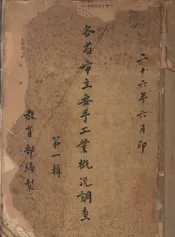 二十六年六月印
各省市主要手工業概況調查
第一輯
教育部編製